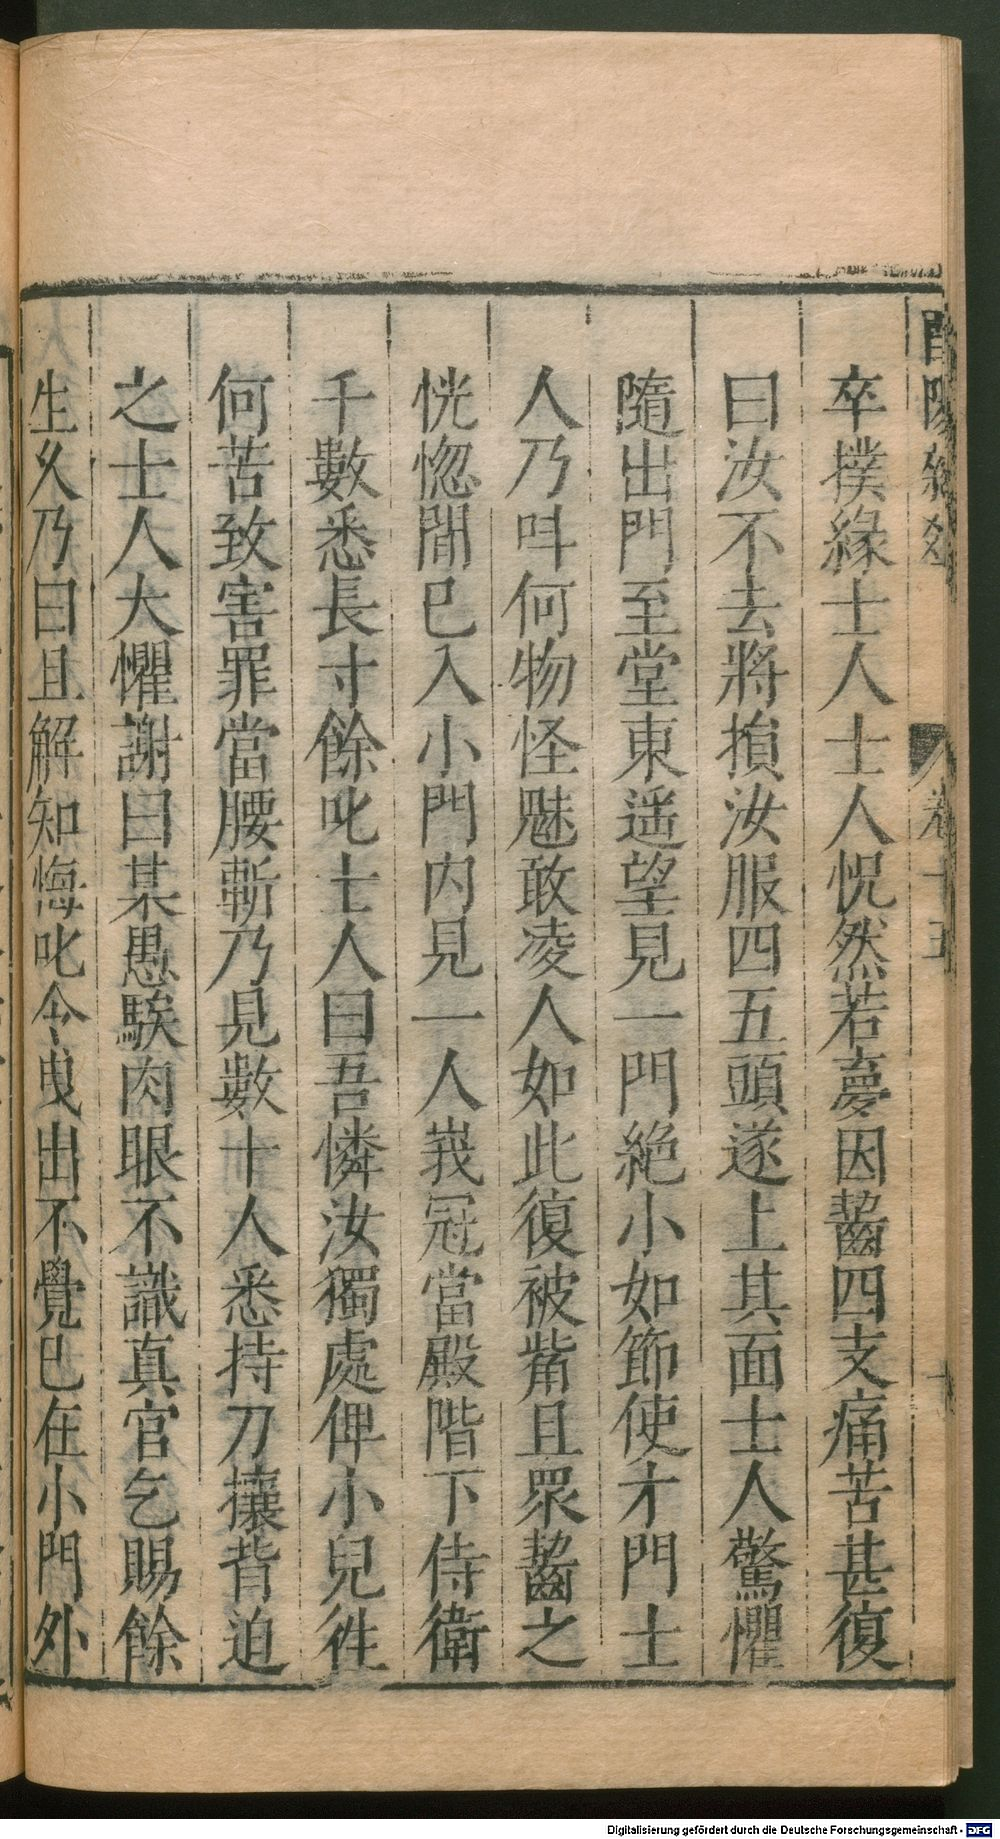 酉陽雜俎
卷十五
卒撲緣士人士人怳然若夢因齧四支痛苦甚復
曰汝不去將損汝服四五頭遂上其面士人驚懼
隨出門至堂東遥望見一門絶小如節使才門士
人乃呌何物怪魅敢凌人如此復被觜且眾齧之
恍惚間已入小門内見一人峩冠當殿階下侍衛
千數悉長寸餘叱士人曰吾憐汝獨處俾小兒徃
何苦致害罪當腰斬乃見數十人悉持刀攘背迫
之士人大懼謝曰某愚騃肉眼不識真官乞賜餘
生乆乃曰且解知悔叱令曳出不覺已在小門外
Digitalisierung gefördert durch die Deutsche Forschungsgemeinschaft - DFG